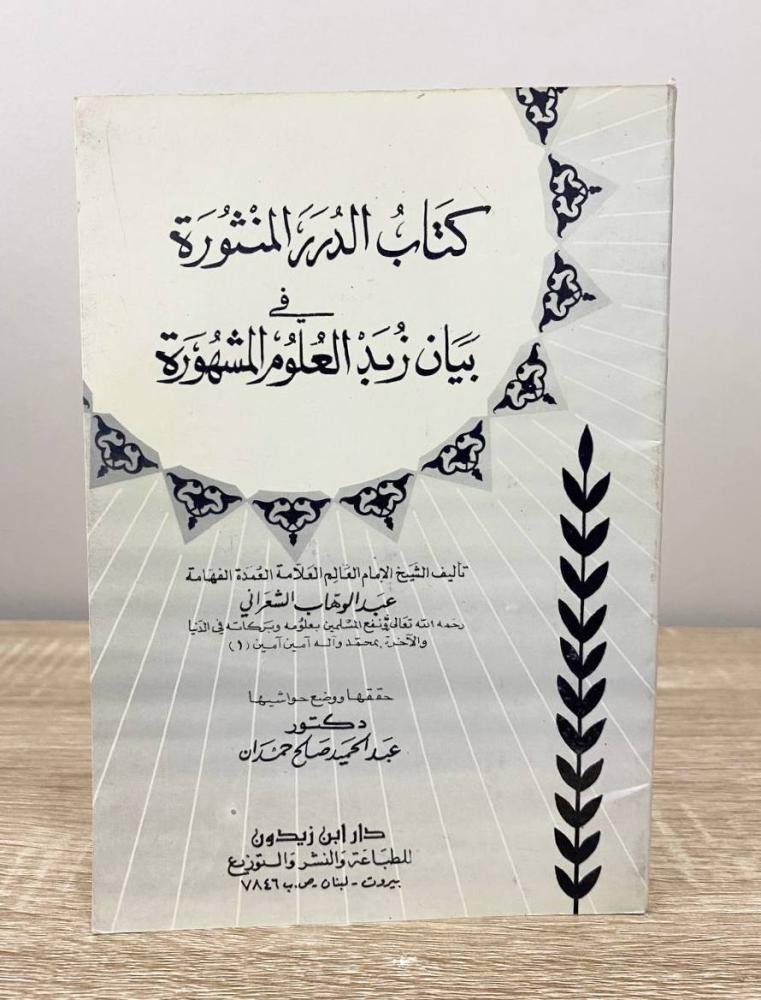 كتَابُ الدُرَر المنْثُورَة
في
بيَان زُبَد العُلوُم المشهُورَة
تأليف الشيخ الإمام العَالِم العَلّامة العُمدَة الفهامة
عبَد الوهّاب الشعَراني
رحمه الله تعَالى ونفع المسْلمين بعلومه وبَركاته في الدنيا
والآخرة بمحمّد وآله آمين آمين (١)
حققها ووضع حواشيها
دكتور
عبَد الحميَد صَالح حمدَان
دار ابن زيدون
للطبَاعَة وَالنشر وَالتوزيع
بيروت - لبنان - ص.ب ٧٨٤٦